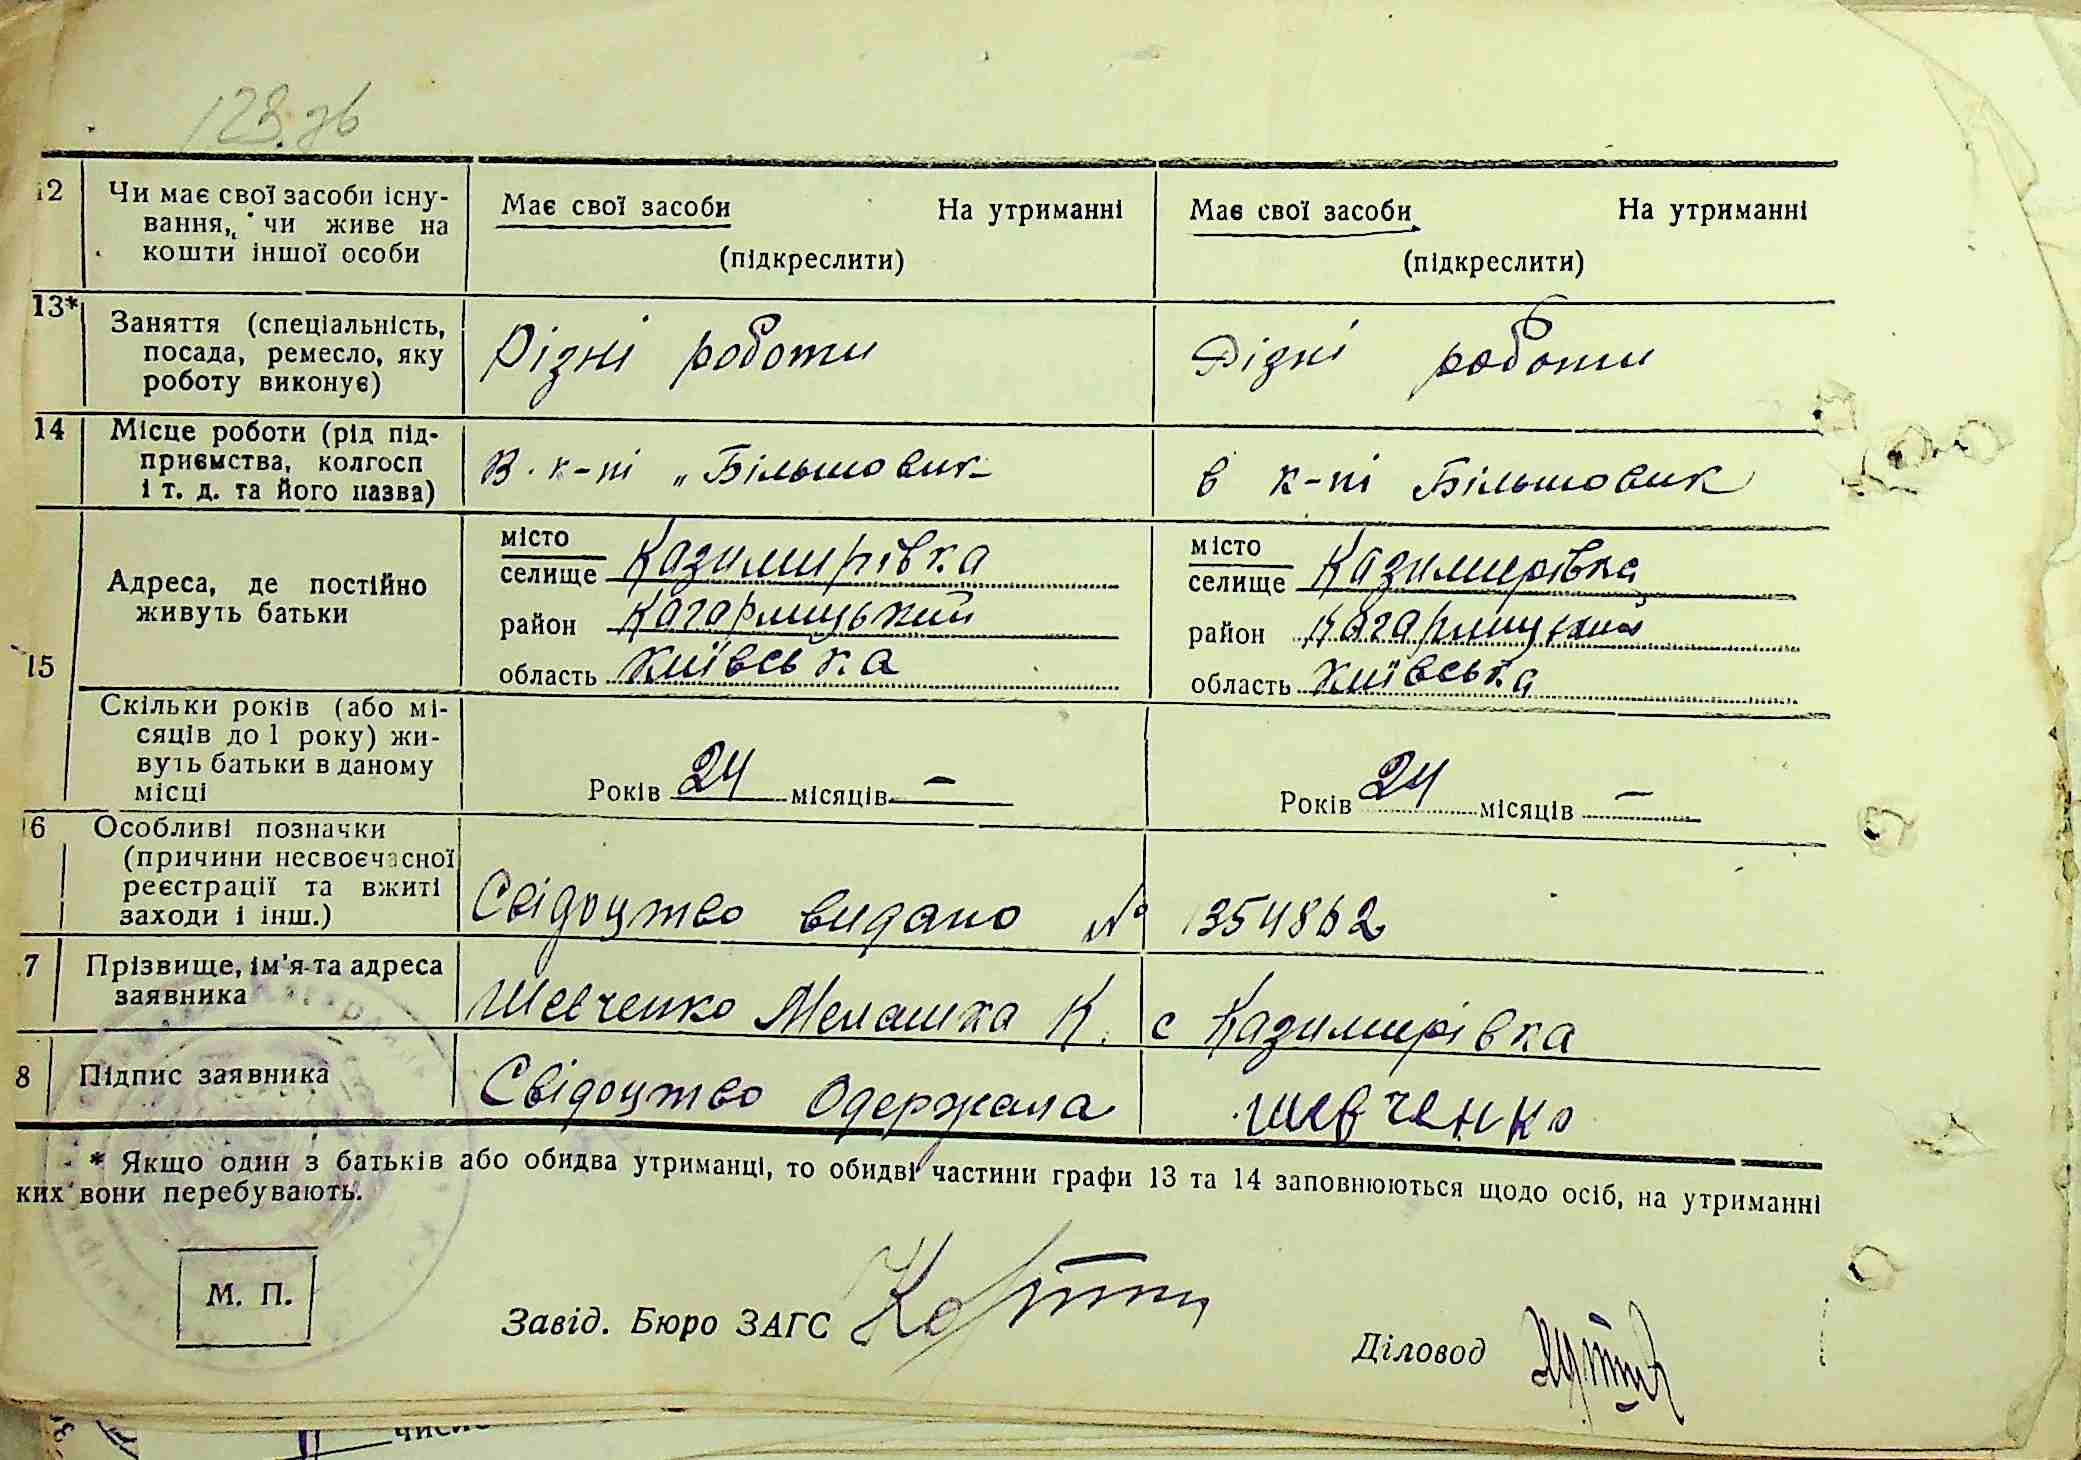 123.зв
12 Чи має свої засоби існу-
вання, чи живе на
кошти іншої особи
Має свої засоби На утриманні
(підкреслити)
Має свої засоби На утриманні
(підкреслити)
13* Заняття (спеціальність,
посада, ремесло, яку
роботу виконує)
Різні роботи
Різні роботи
14 Місце роботи (рід під-
приємства, колгосп
і т. д. та його назва)
В. к-пі „Більшовик
в к-пі Більшовик
15 Адреса, де постійно
живуть батьки
місто
селище Казимирівка
район Кагарлицький
область Київська
місто
селище Казимирівка
район Кагарлицький
область Київська
Скільки років (або мі-
сяців до 1 року) жи-
вуть батьки в даному
місці
Років 24 місяців –
Років 24 місяців –
6 Особливі позначки
(причини несвоєчасної
реєстрації та вжиті
заходи і інш.)
Свідоцтво видано № 1354862
7 Прізвище, ім'я та адреса
заявника
Шевченко Мелашка К. с Казимирівка
8 Підпис заявника
Свідоцтво Одержала Шевченко
* Якщо один з батьків або обидва утриманці, то обидві частини графи 13 та 14 заповнюються щодо осіб, на утриманні
ких вони перебувають.
М. П.
Завід. Бюро ЗАГС
Діловод